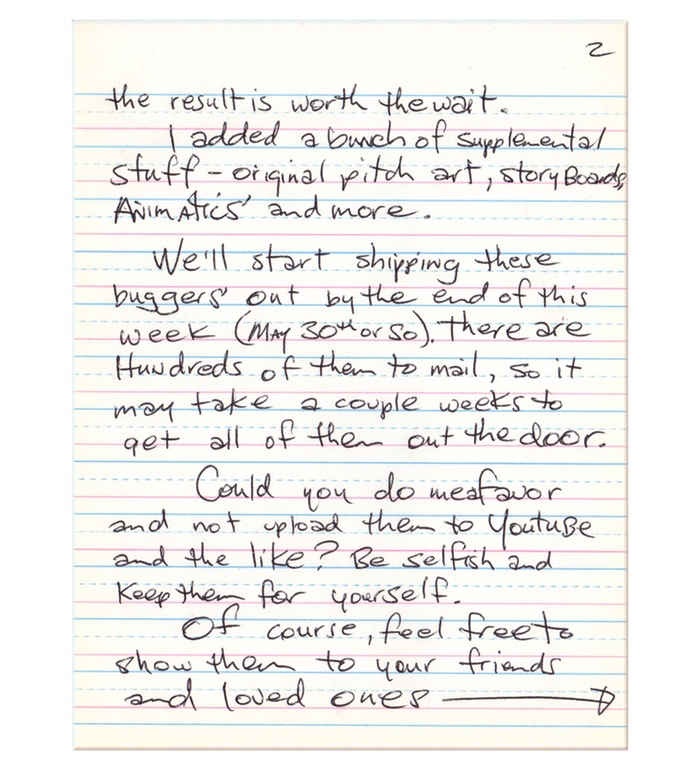 2
the result is worth the wait.
I added a bunch of supplemental
stuff - original pitch art, storyBoards,
AnimAtics' and more.
We'll start shipping these
buggers' out by the end of this
week (MAY 30th or so). There are
Hundreds of them to mail, so it
may take a couple weeks to
get all of them out the door.
Could you do me a favor
and not upload them to YoutuBe
and the like? Be selfish and
Keep them for yourself.
Of course, feel free to
show them to your friends
and loved ones →